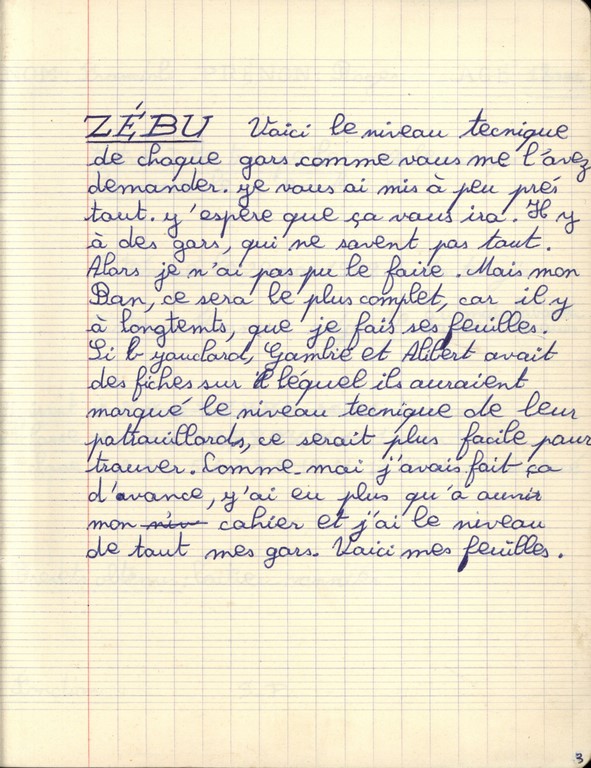 ZÉBU Voici le niveau tecnique
de chaque gars comme vous me l'avez
demander. ye vous ai mis à peu prés
tout. y'espère que ça vous ira. Il y
à des gars, qui ne savent pas tout.
Alors je n'ai pas pu le faire. Mais mon
Ban, ce sera le plus complet, car il y
à longtemts, que je fais ses feuilles.
Si Gauclard, Gambié et Alibert avait
des fiches sur léquel ils auraient
marqué le niveau tecnique de leur
patrouillards, ce serait plus facile pour
trouver. Comme moi j'avais fait ça
d'avance, y'ai eu plus qu'à ouvrir
mon cahier et j'ai le niveau
de tout mes gars. Voici mes feuilles.
3